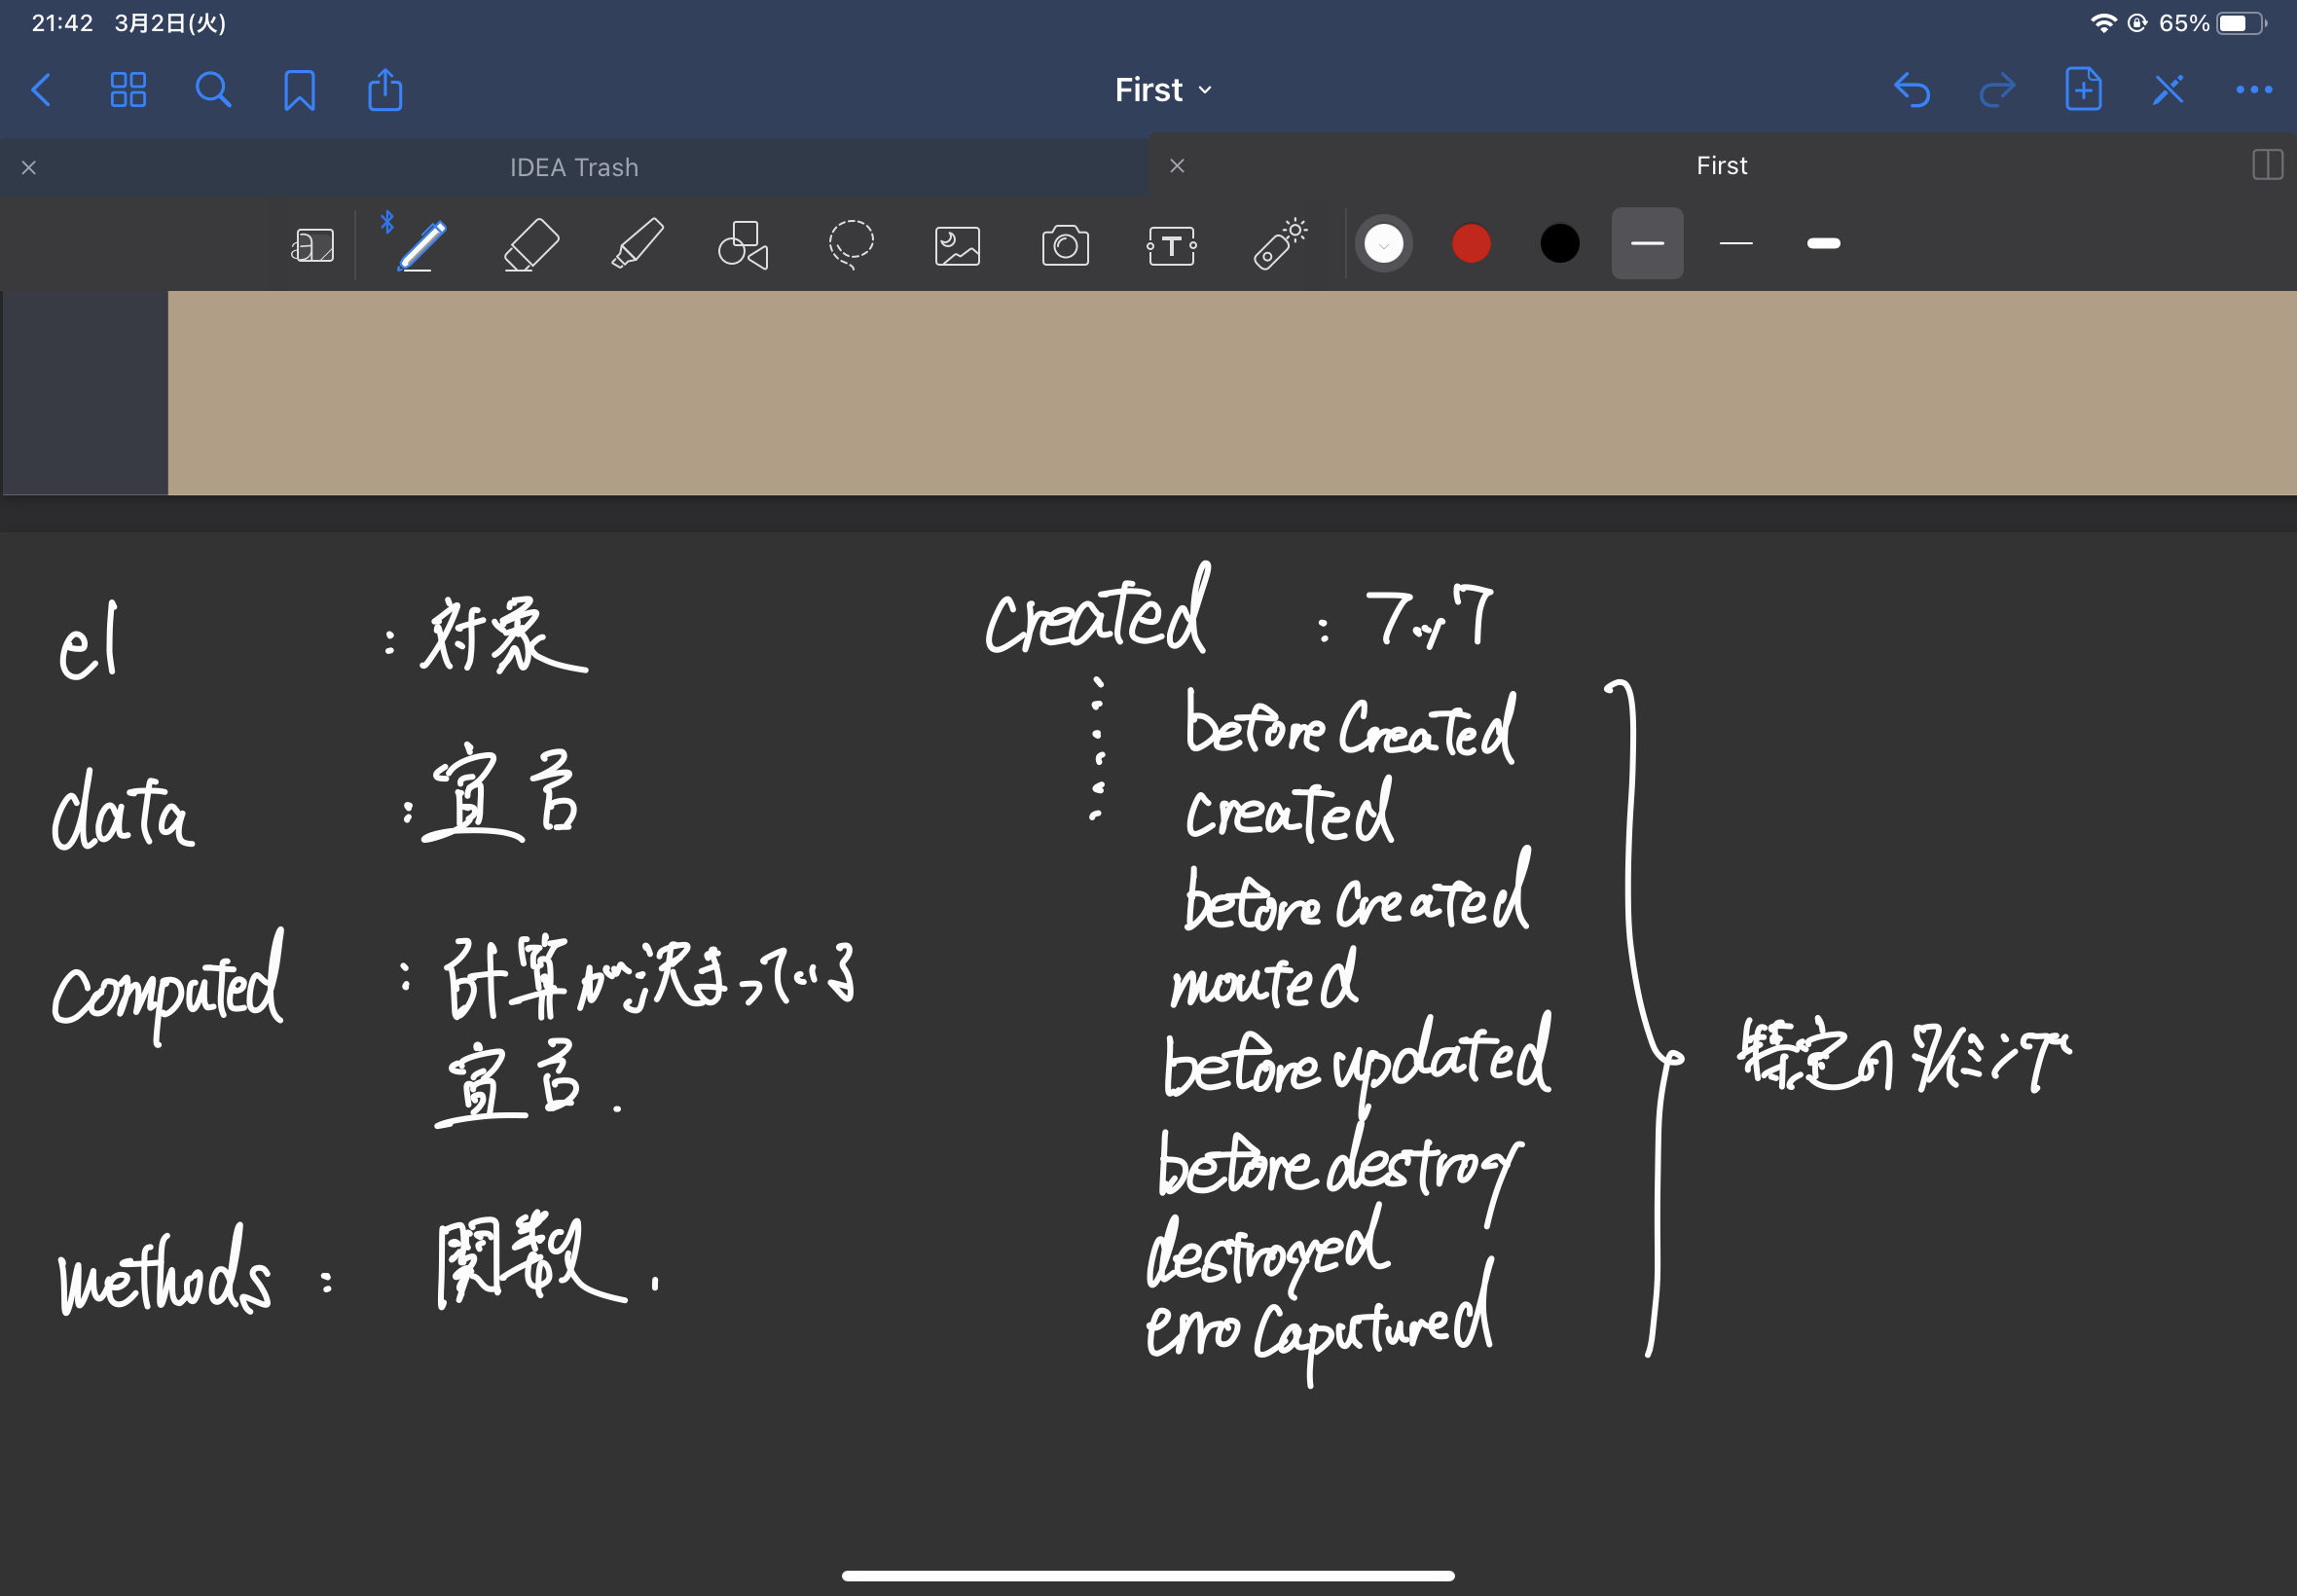 21:42 3月2日(火)
65%
First
IDEA Trash
First
T
el : 対象
data : 宣言
computed : 計算
宣言.
methods : 関数.
created : フック
beforeCreated
created
beforeCreated
mouted
beforeupdated
beforedestroy
destroyed
erroCaptured
特定の